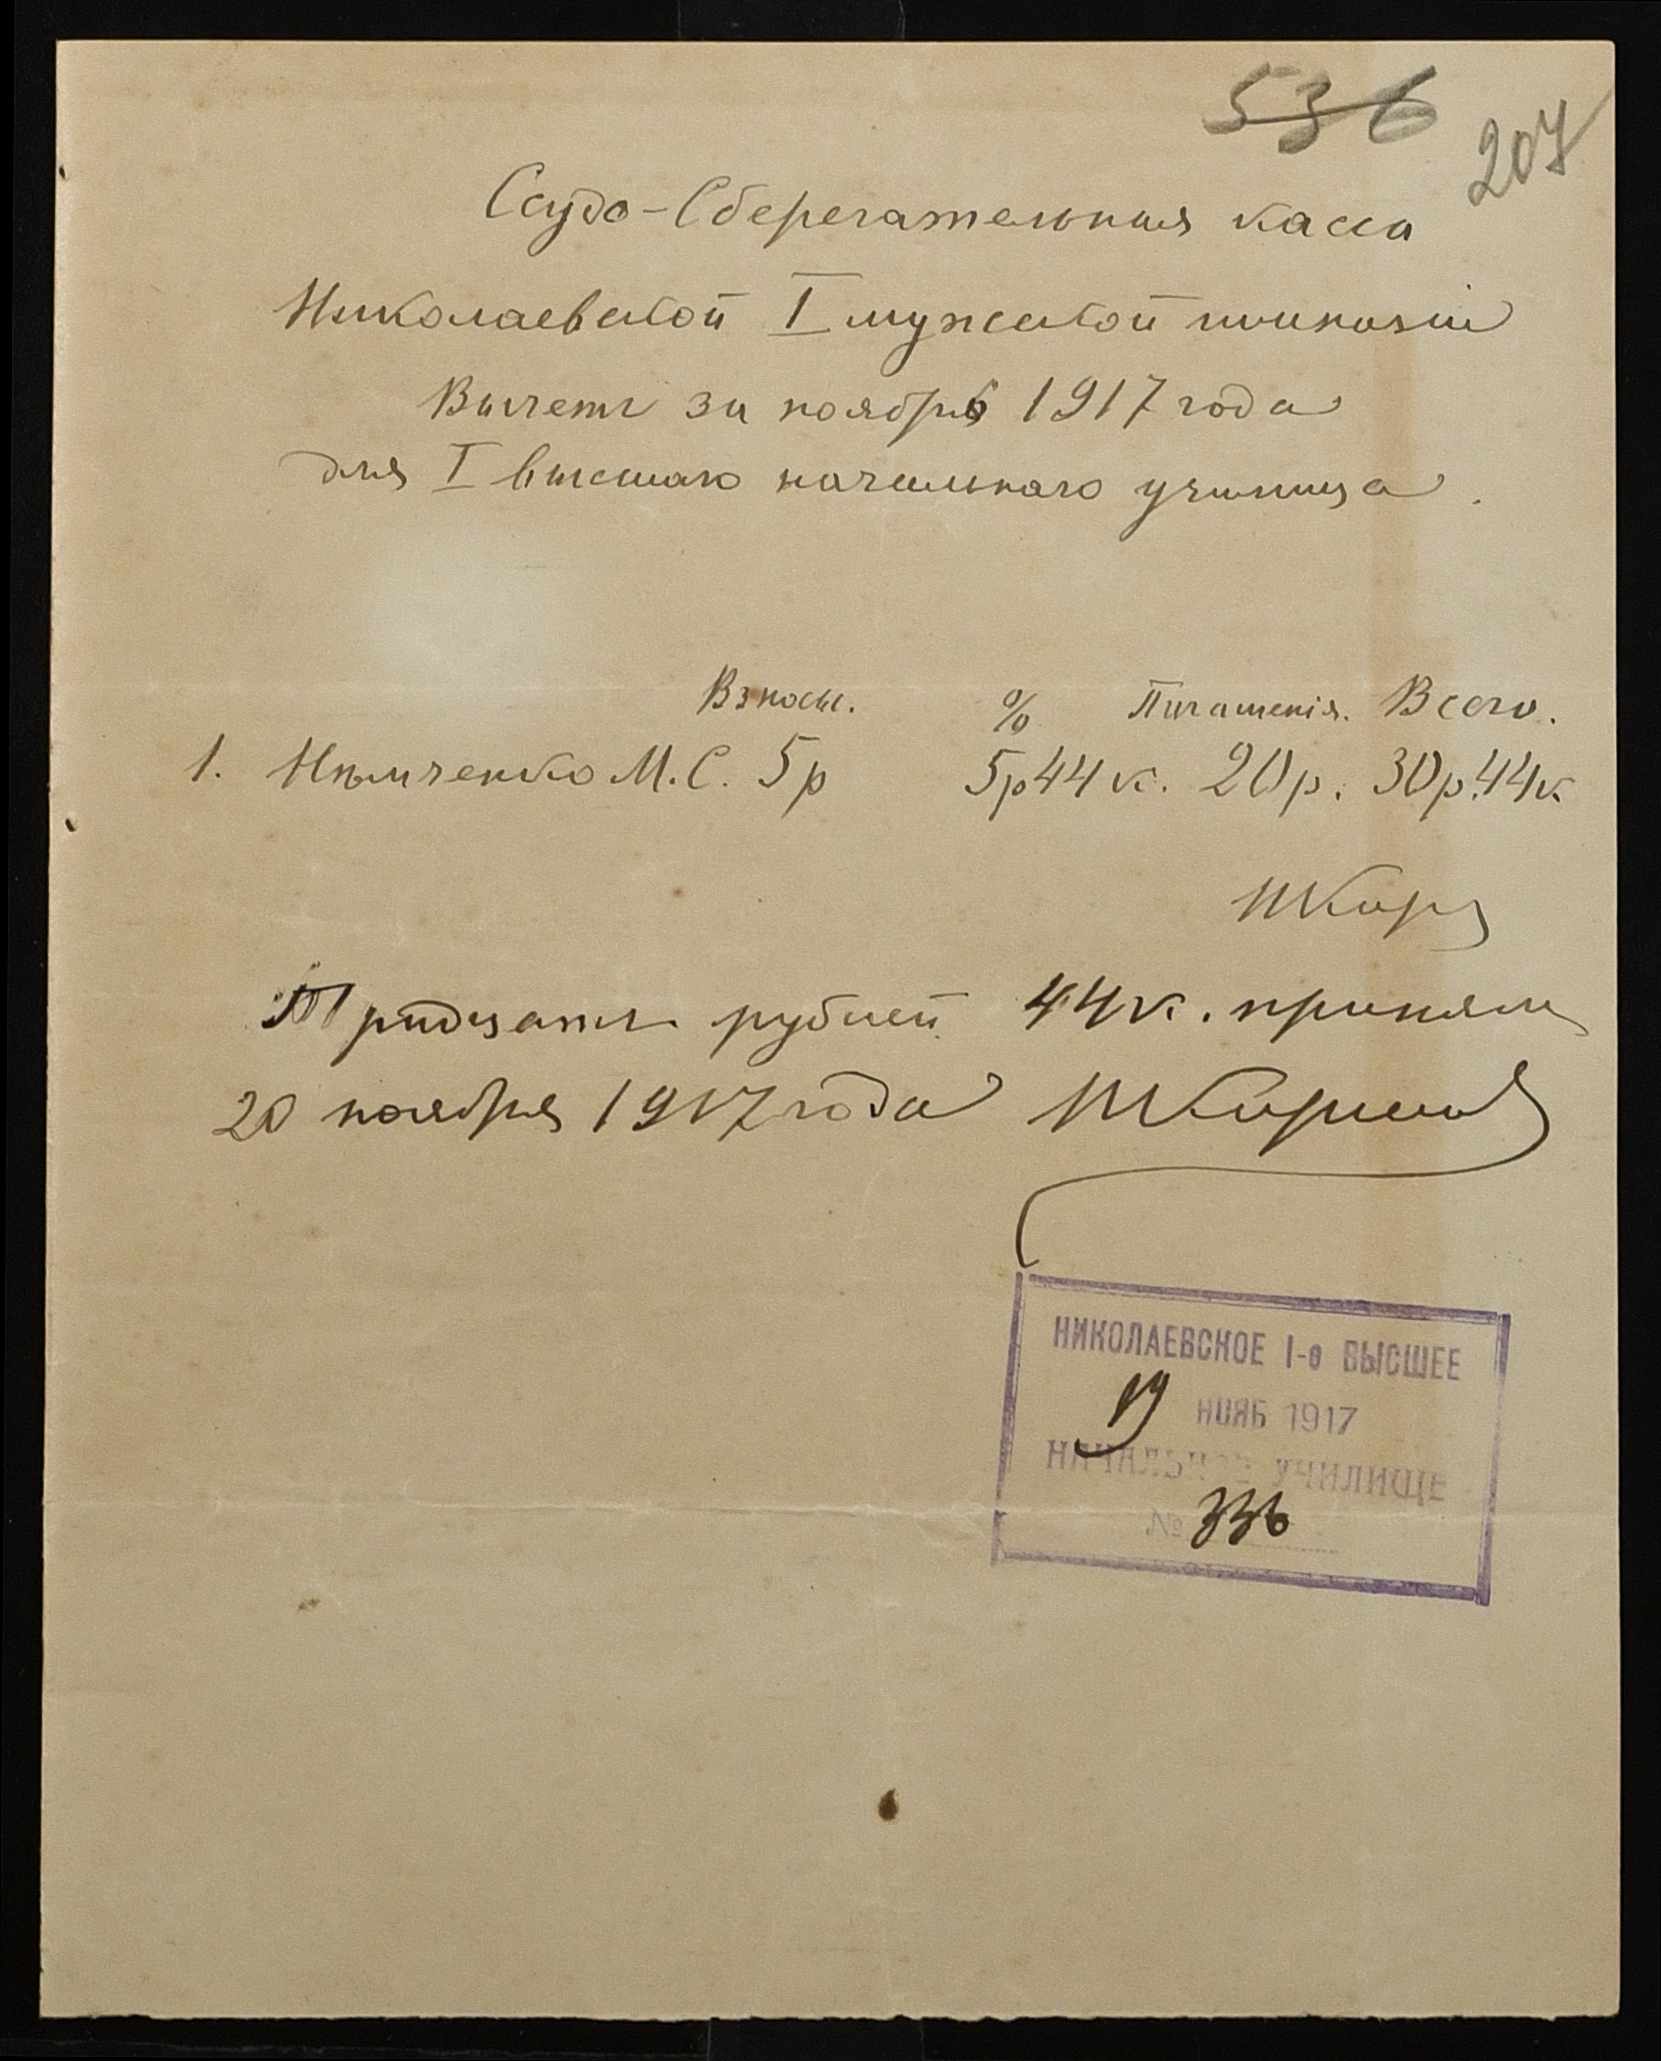 536
207
Ссудо-Сберегательная касса
Николаевской I мужской гимназіи
Вычетъ за ноябрь 1917 года
для I высшаго начальнаго училища.
Взносы. % Погашенія. Всего.
1. Нѣмченко М.С. 5р 5р44к. 20р. 30р.44к
Тридцать рублей 44к. принялъ
20 ноября 1917 года
НИКОЛАЕВСКОЕ I-е ВЫСШЕЕ
19 НОЯБ 1917
НАЧАЛЬНОЕ УЧИЛИЩЕ
№ 336